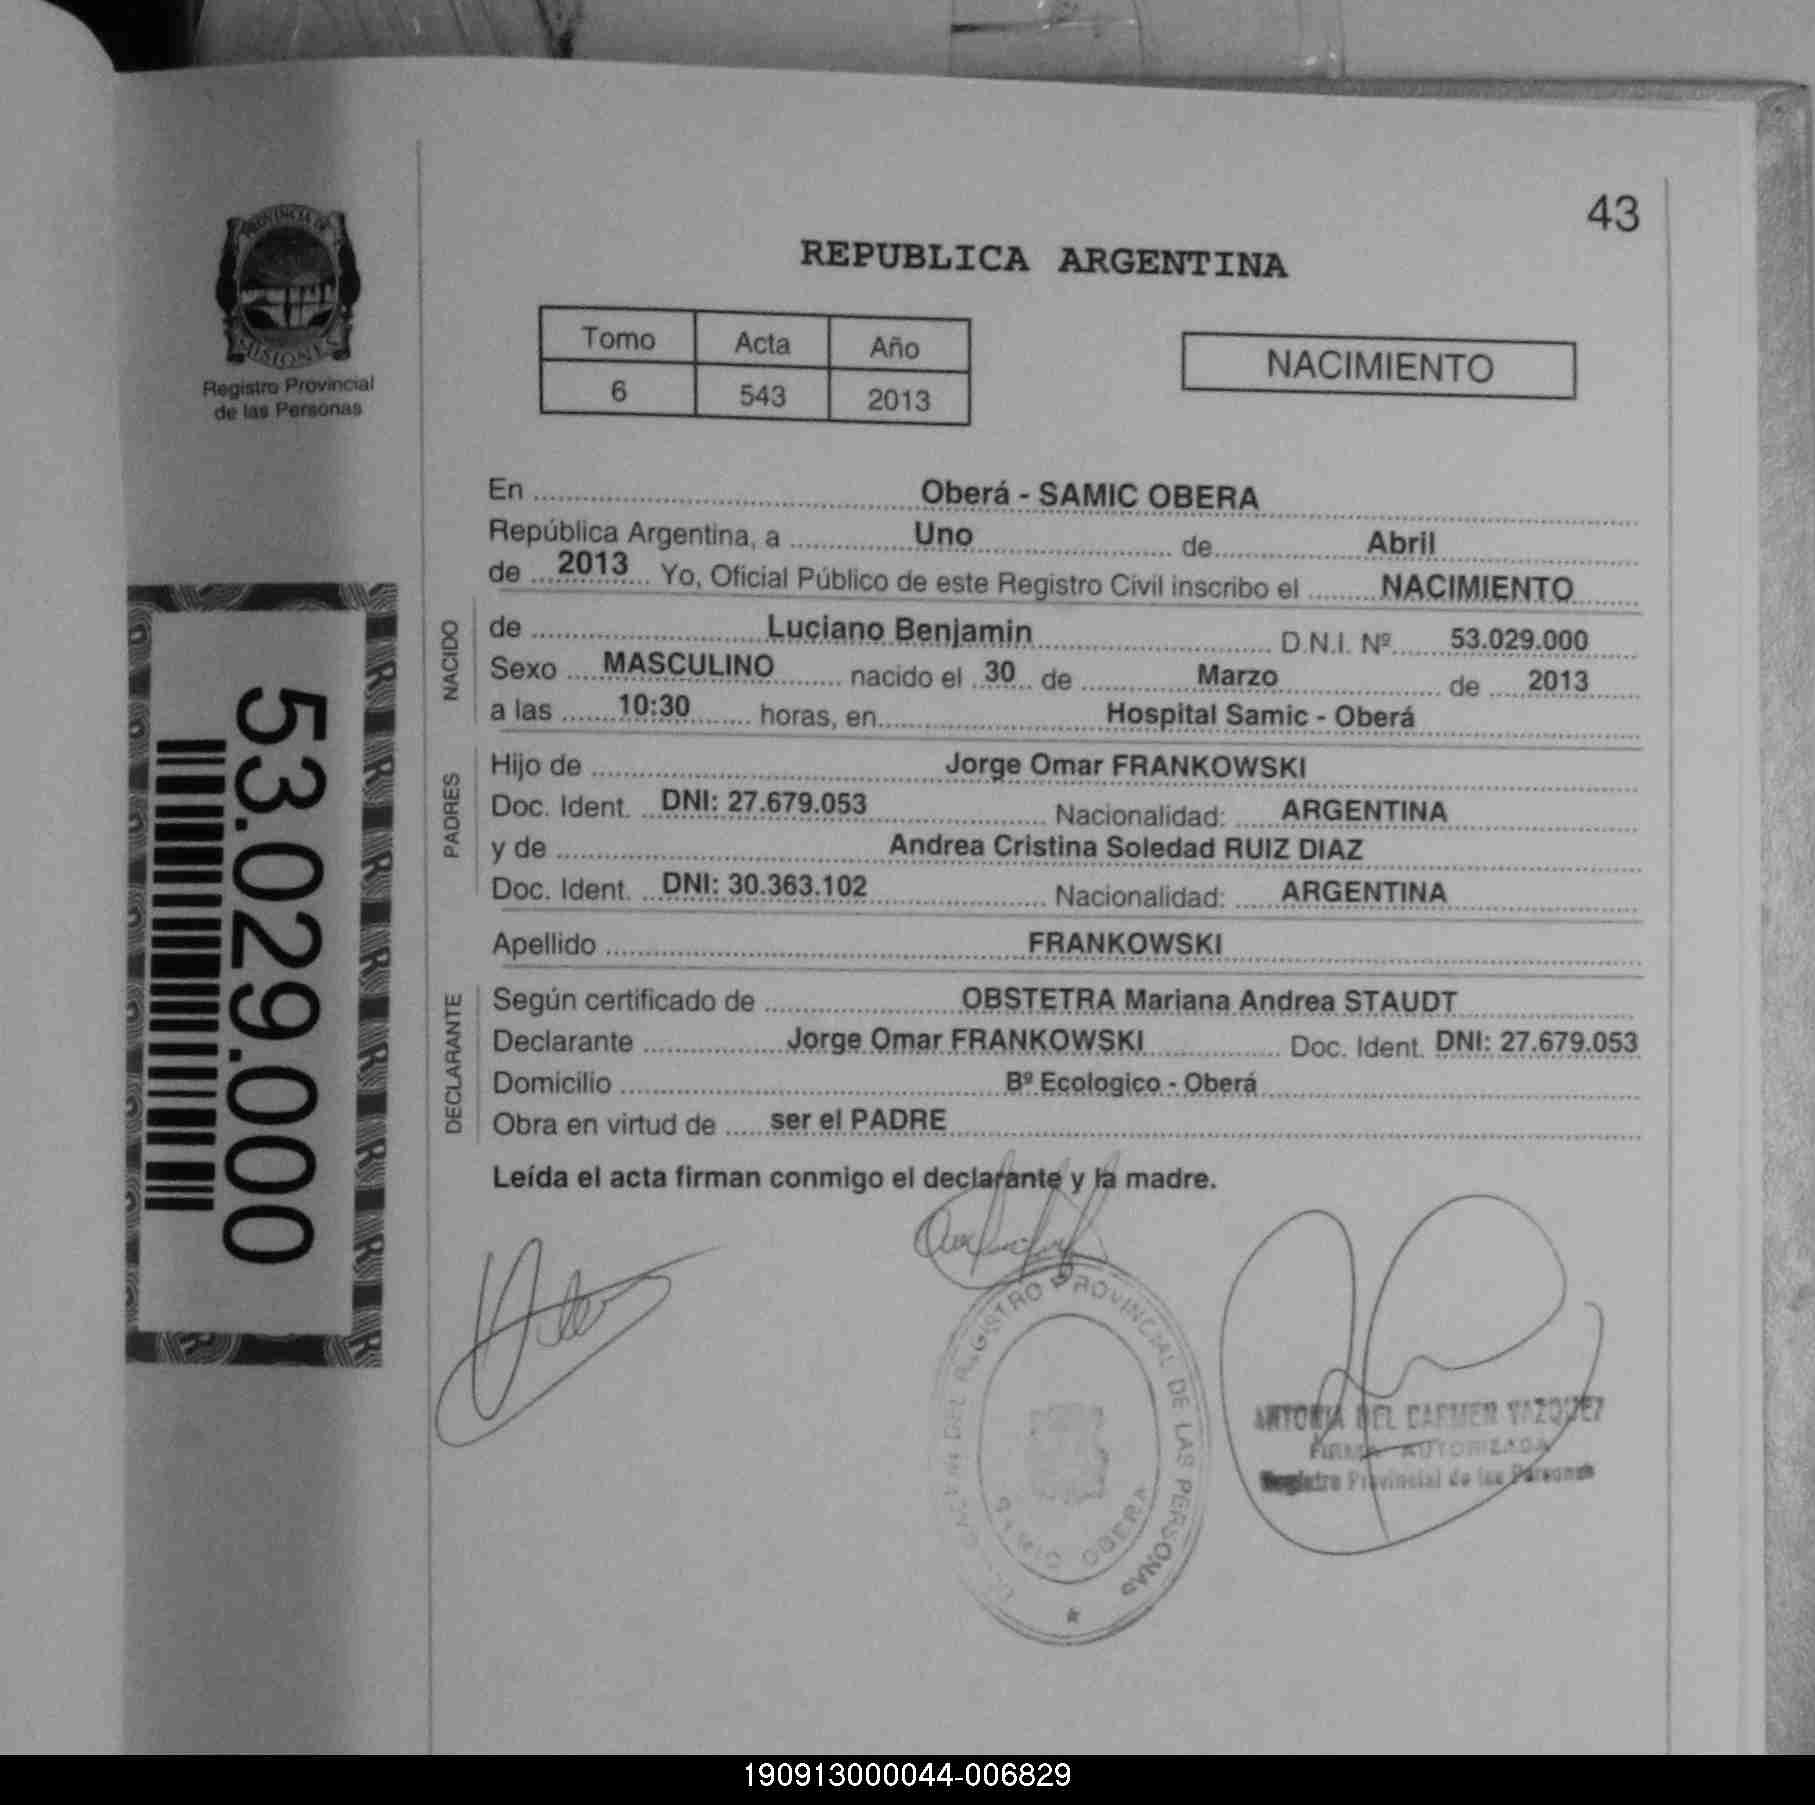 43
REPUBLICA ARGENTINA
PROVINCIA DE
MISIONES
Registro Provincial
de las Personas
Tomo Acta Año
6 543 2013
NACIMIENTO
En Oberá - SAMIC OBERA
República Argentina, a Uno de Abril
de 2013 Yo, Oficial Público de este Registro Civil inscribo el NACIMIENTO
NACIDO
de Luciano Benjamin D.N.I. Nº 53.029.000
Sexo MASCULINO nacido el 30 de Marzo de 2013
a las 10:30 horas, en Hospital Samic - Oberá
PADRES
Hijo de Jorge Omar FRANKOWSKI
Doc. Ident. DNI: 27.679.053 Nacionalidad: ARGENTINA
y de Andrea Cristina Soledad RUIZ DIAZ
Doc. Ident. DNI: 30.363.102 Nacionalidad: ARGENTINA
Apellido FRANKOWSKI
DECLARANTE
Según certificado de OBSTETRA Mariana Andrea STAUDT
Declarante Jorge Omar FRANKOWSKI Doc. Ident. DNI: 27.679.053
Domicilio Bº Ecologico - Oberá
Obra en virtud de ser el PADRE
Leída el acta firman conmigo el declarante y la madre.
53.029.000
DEL REGISTRO PROVINCIAL DE LAS PERSONAS
OBERA
ANTONIA DEL CARMEN VAZQUEZ
FIRMA AUTORIZADA
Registro Provincial de las Personas
190913000044-006829